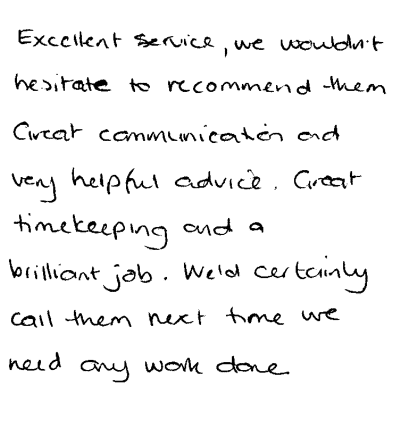 Excellent service, we wouldn't
hesitate to recommend them
Great communication and
very helpful advice. Great
timekeeping and a
brilliant job. We'd certainly
call them next time we
need any work done.